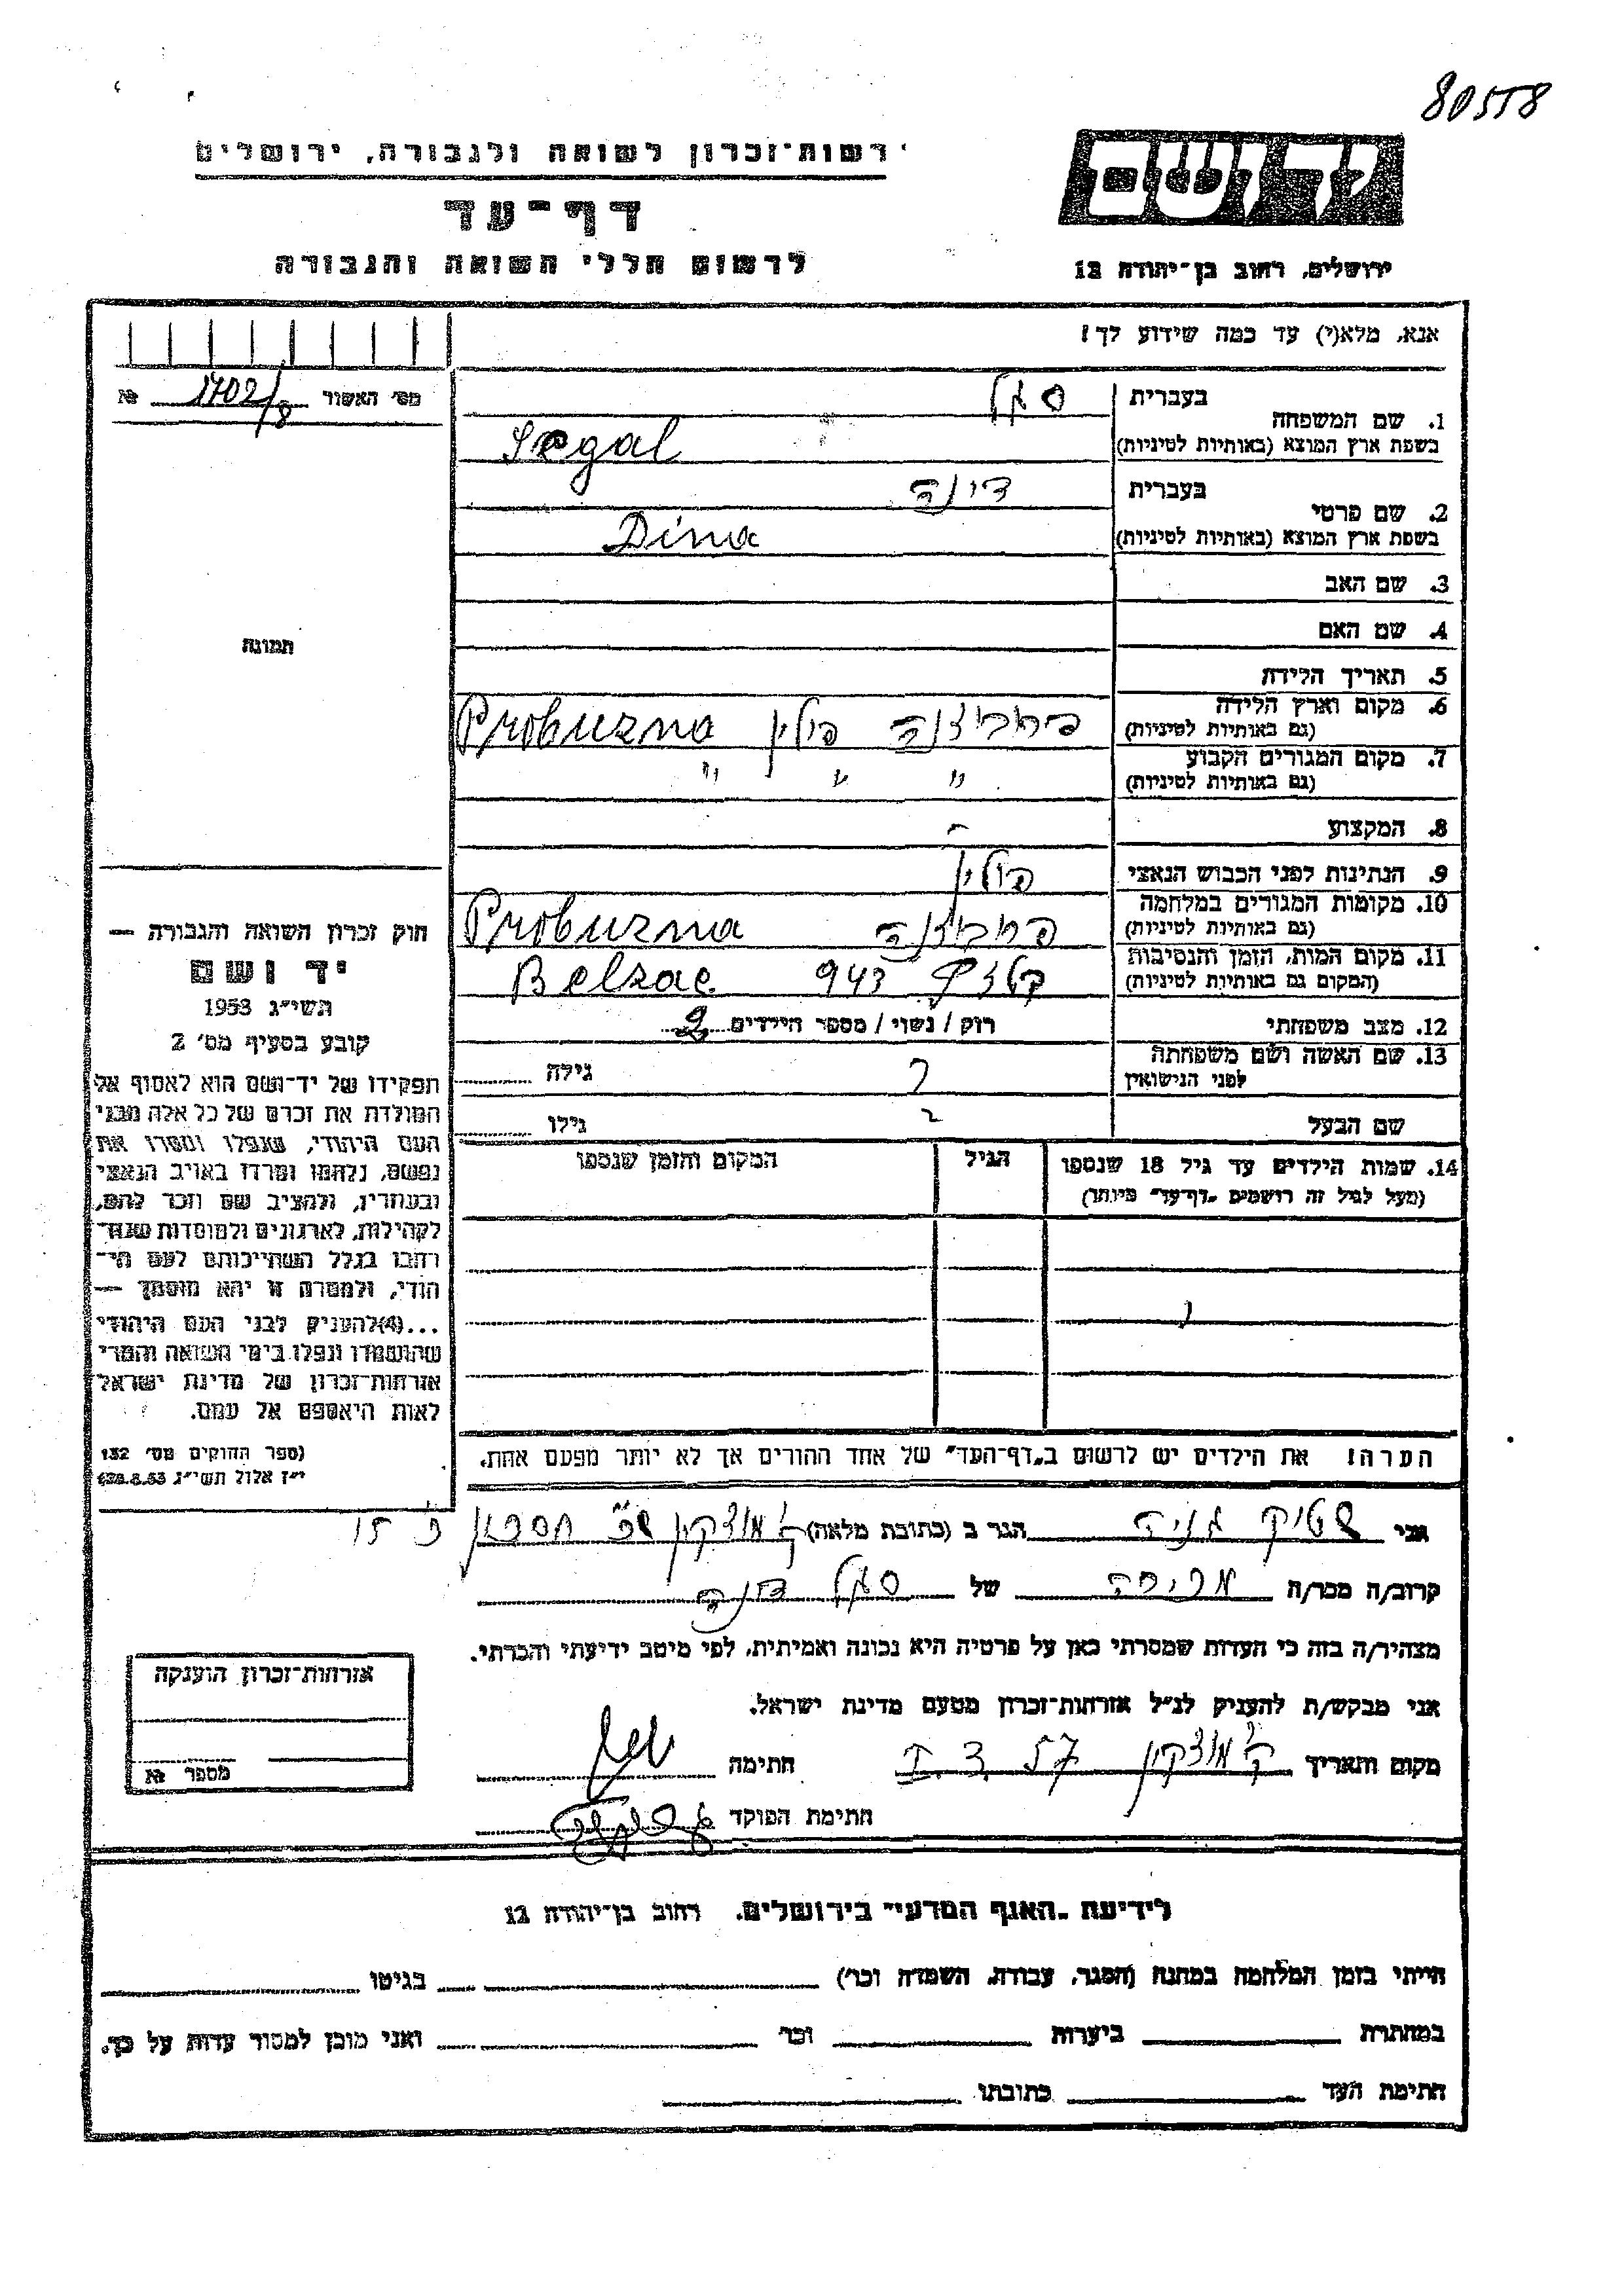 80558
רשות־זכרון לשואה ולגבורה, ירושלים
דף־עד
לרשום חללי השואה והגבורה
יד ושם
ירושלים, רחוב בן־יהודה 12
אנא, מלא(י) עד כמה שידוע לך!
מס׳ האשור 1702/8 №
1. שם המשפחה
בעברית סגל
בשפת ארץ המוצא (באותיות לטיניות) Segal
2. שם פרטי
בעברית דינה
בשפת ארץ המוצא (באותיות לטיניות) Dina
3. שם האב
4. שם האם
5. תאריך הלידה
6. מקום וארץ הלידה
(גם באותיות לטיניות) פרוביזנה פולין Probuzna
7. מקום המגורים הקבוע
(גם באותיות לטיניות) " " "
8. המקצוע -
9. הנתינות לפני הכבוש הנאצי פולין
10. מקומות המגורים במלחמה
(גם באותיות לטיניות) Probuzna
11. מקום המות, הזמן והנסיבות
(המקום גם באותיות לטיניות) בלזץ 943 Belzac
12. מצב משפחתי רוק / נשוי / מספר הילדים 2
13. שם האשה ושם משפחתה
לפני הנישואין ? גילה
שם הבעל ? גילו
14. שמות הילדים עד גיל 18 שנספו
(מעל לגיל זה רושמים „דף־עד” מיוחד)
הגיל
המקום והזמן שנספו
הערה! את הילדים יש לרשום ב„דף־העד” של אחד ההורים אך לא יותר מפעם אחת.
תמונה
חוק זכרון השואה והגבורה —
יד ושם
תשי״ג 1953
קובע בסעיף מס׳ 2
תפקידו של יד־ושם הוא לאסוף אל
המולדת את זכרם של כל אלה מבני
העם היהודי, שנפלו ומסרו את
נפשם, נלחמו ומרדו באויב הנאצי
ובעוזריו, ולהציב שם וזכר להם,
לקהילות, לארגונים ולמוסדות שנח־
רבו בגלל השתייכותם לעם הי־
הודי, ולמטרה זו יהא מוסמך —
...(4) להעניק לבני העם היהודי
שהושמדו ונפלו בימי השואה והמרי
אזרחות־זכרון של מדינת ישראל
לאות היאספם אל עמם.
(ספר החוקים מס׳ 132
י״ז אלול תשי״ג 28.8.53)
אני שטיק גניה הגר ב (כתובת מלאה) ק׳ מוצקין
קרוב/ה מכר/ה מכירה של סגל דינה
מצהיר/ה בזה כי העדות שמסרתי כאן על פרטיה היא נכונה ואמיתית, לפי מיטב ידיעתי והכרתי.
אני מבקש/ת להעניק לנ״ל אזרחות־זכרון מטעם מדינת ישראל.
מקום ותאריך ק׳ מוצקין חתימה
חתימת הפוקד
אזרחות־זכרון הוענקה
מספר №
לידיעת „האגף המדעי” בירושלים, רחוב בן־יהודה 12
הייתי בזמן המלחמה במחנה (הסגר, עבודה, השמדה וכו׳) בגיטו
במחתרת ביערות וכו׳ ואני מוכן למסור עדות על כך.
חתימת העד כתובתו